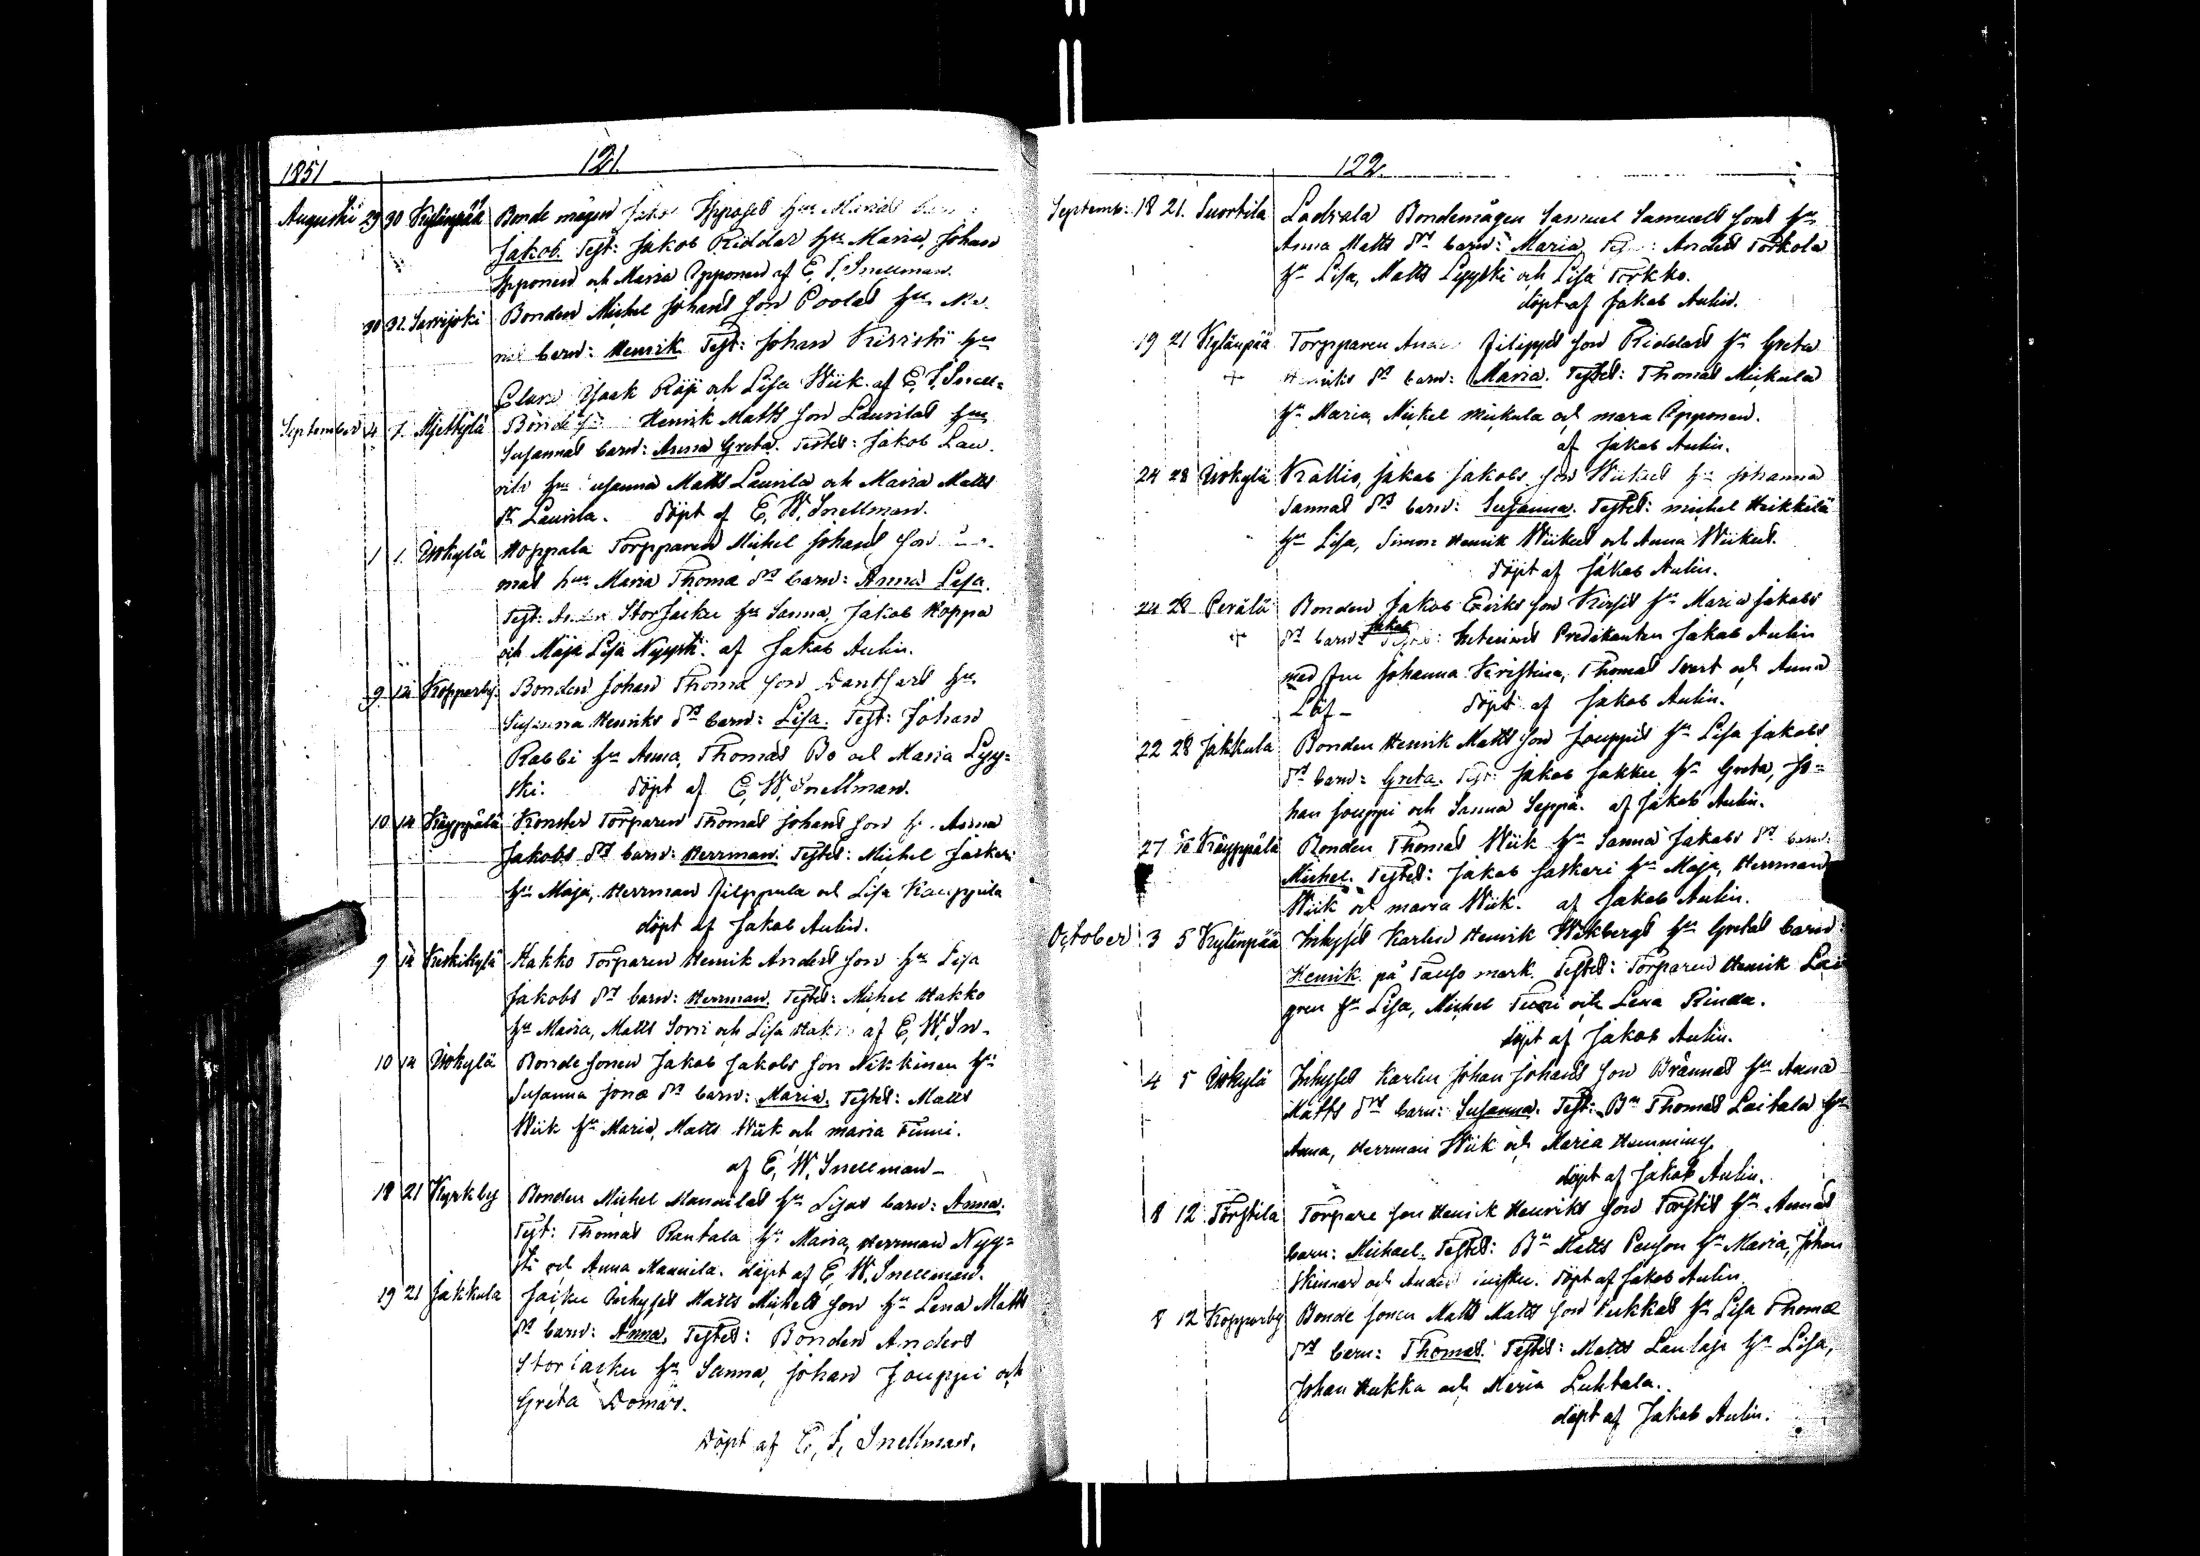 1851
121.
Augusti 29 30 Kylänpää Bonde mågen Jakob Ipponés hu Marias barn:
Jakob. Test: Jakob Riddar hu Maria Johan
Ipponen och Maria Ipponen af E. I. Snellman.
30 31. Sarvijoki Bonden Michel Johans Son Poolas hu
barn: Henrik. Test: Johan hu
Clara Isaak Röji och Lisa Wiik. af E. I. Snell=
September 4 7. Mjettylä Bonde Henrik Matts Son Laurilas hu
Susannas barn: Anna Greta. Testes: Jakob Lau
rila hu Susanna Matts Laurila och Maria Matts
dr Laurila. döpt af E. W. Snellman.
1 1. Isokylä Koppala Torpparen Michel Johans Son
mas hu Maria Thomæ dr barn: Anna Lisa.
Test: Storjacku hu Sanna, Jakob Koppa
och Maja Lisa Nyysti. af Jakob Aulin.
9. 14 Kopparby. Bonden Johan Thomæ Son hu
Susanna Henriks dr barn: Lisa. Test: Johan
Rabbi hu Anna, Thomas Bo och Maria Lyy=
ski. döpt af E. W. Snellman.
10 14 Käyppälä Konster Torparen Thomas Johans Son hu Anna
Jakobs dr barn: Herrman. Testes: Michel Jaskari
hu Maja, Herrman Filppula och Lisa Kauppila
döpt af Jakob Aulin.
9 14 Keskikylä Hakko Torparen Henrik Anders Son hu Lisa
Jakobs dr barn: Herrman. Testes: Michel Hakko
hu Maria, Matts Sorri och Lisa Hakko af E. W. Sn-
10 14 Isokylä Bonde Sonen Jakob Jakobs Son Nikkinen hu
Susanna Jonæ dr barn: Maria. Testes: Matts
Wiik hu Maria, Matts Wiik och Maria Tunni.
af E. W. Snellman-
18 21 Kyrkby Bonden Michel Mannilas hu Lisas barn: Anna.
Test: Thomas Rantala hu Maria, Herrman Nyy=
sti och Anna Mannila. döpt af E. W. Snellman.
19 21 Jakkula Jäcku Inhyses Matts Michels Son hu Lena Matts
dr barn: Anna. Testes: Bonden Anders
Storjacku hu Sanna, Johan Jouppi och
Greta Domars.
Döpt af E. I. Snellman.
122.
Septemb: 18 21. Suortila Ladvala Bondemågen Samuel Samuels Sons hu
Anna Matts dr barn: Maria. Test: Anders Torkola
hu Lisa, Matts Lyyski och Lisa Torkko.
döpt af Jakob Aulin.
19 21 Kylänpää Torpparen Filippus Son Riddars hu Greta
+ Henriks dr barn: Maria. Testes: Thomas Mickala
hu Maria, Mickel Mickala och Maria Ipponen.
af Jakob Aulin.
24 28 Isokylä Krallio, Jakob Jakobs Son Wiikus hu Johanna
Sannas dr barn: Susanna. Testes: Michel Heikkilä
hu Lisa, Simon Henrik Wiikus och Anna Wiikus.
döpt af Jakob Aulin.
24 28 Perälä Bonden Jakob Eriks Son hu Maria Jakobs
+ dr barn: Jakob Testes: Interims Predikanten Jakob Aulin
med fru Johanna Kristina, Thomas Svart och Anna
Löf- Döpt af Jakob Aulin.
22 28 Jakkula Bonden Henrik Matts Son Jouppis hu Lisa Jakobs
dr barn: Greta. Test: Jakob Jakku hu Greta, Jo=
han Jouppi och Sanna Seppä. af Jakob Aulin.
27 Käyppälä Bonden Thomas Wiik hu Sanna Jakobs dr barn:
Michel. Testes: Jakob Jaskari hu Maja, Herrman
Wiik och Maria Wiik. af Jakob Aulin.
October 3 5 Kylänpää Inhyses Karlen Henrik Wikbergs hu Gretas barn:
Henrik på mark. Testes: Torparen Henrik
gren hu Lisa, Michel och Lena Rinda.
döpt af Jakob Aulin.
4 5 Isokylä Inhyses Karlen Johan Johans Son Brännas hu Anna
Matts dr barn: Susanna. Test: Bn Thomas Laitala hu
Anna, Herrman Wiik och Maria Hemming
döpt af Jakob Aulin.
8 12 Torstila Torpare Son Henrik Henriks Son Torstis hu Annas
barn: Michael. Testes: Bn Matts Penson hu Maria, Johan
Skinnar och döpt af Jakob Aulin.
8 12 Kopparby Bonde Sonen Matts Matts Son Kukkas hu Lisa Thomæ
dr barn: Thomas. Testes: Matts Laulaja hu Lisa,
Johan Kukka och Maria Luhtala.
döpt af Jakob Aulin.